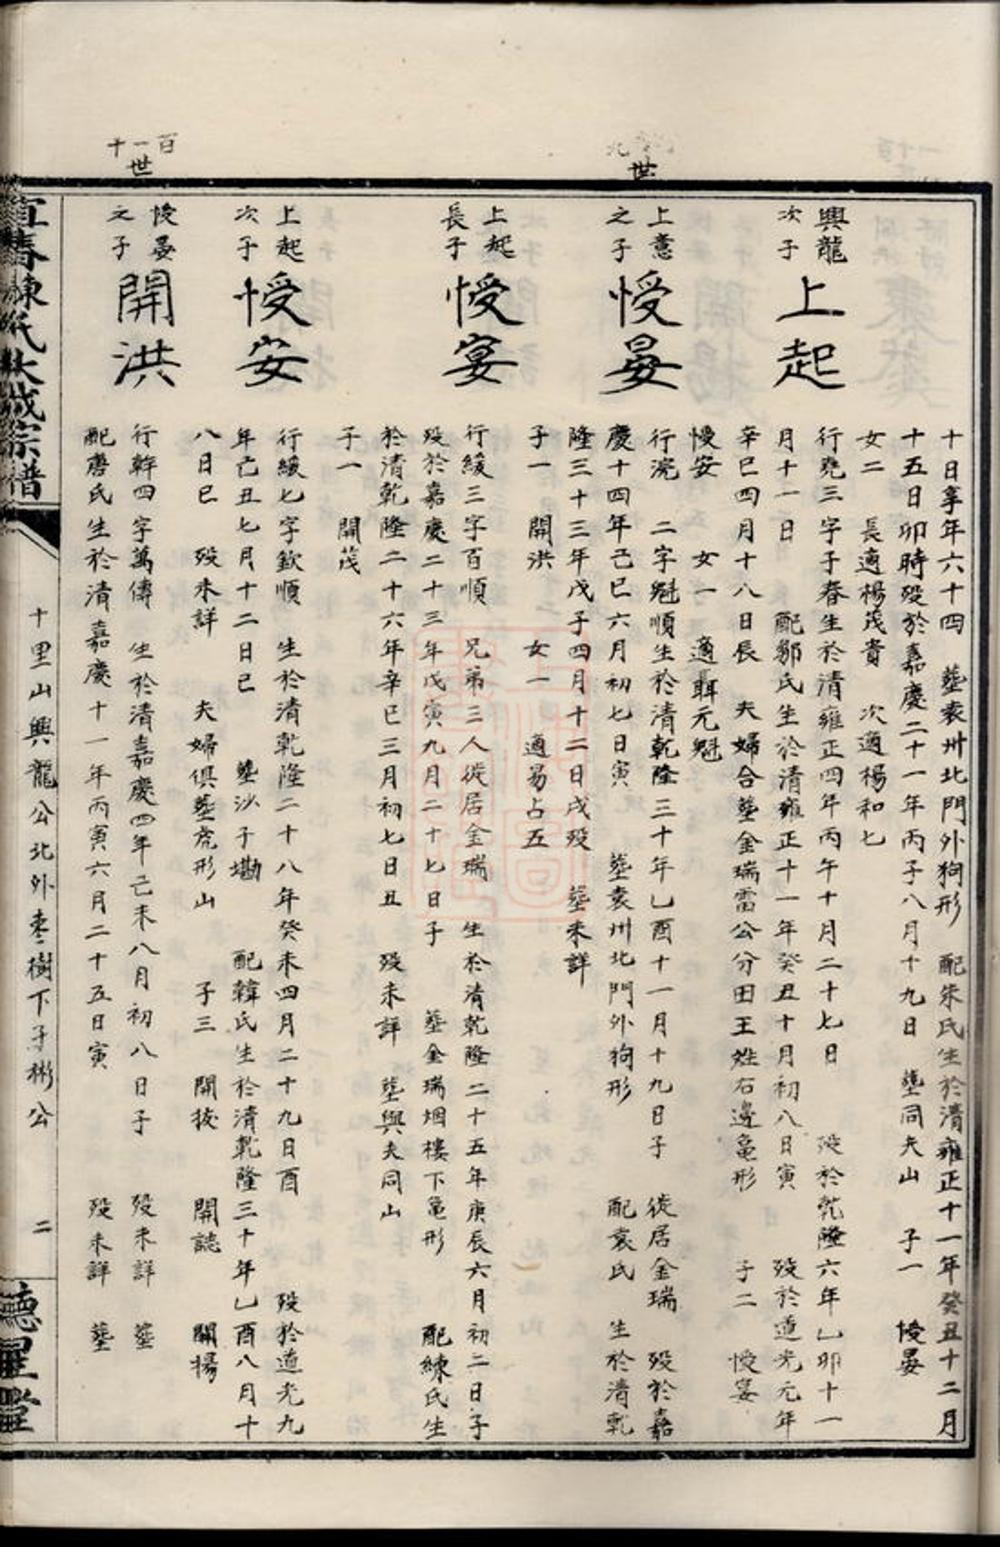 十日享年六十四　塟袁州北門外狗形　配朱氏生於清雍正十一年癸丑十二月
十五日卯時殁於嘉慶二十一年丙子八月十九日　塟同夫山　子一　㥅晏
女二　長適楊茂貴　次適楊和七
興龍
次子
上起
行堯三字子春生於清雍正四年丙午十月二十七日　殁於乾隆六年乙卯十一
月十一日　配鄒氏生於清雍正十一年癸丑十月初八日寅　殁於道光元年
辛巳四月十八日辰　夫婦合塟金瑞雷公分田王姓石邊龜形　子二　㥅宴
㥅安　女一　適聶元魁
世
上意
之子
㥅晏
行浣　二字魁順生於清乾隆三十年乙酉十一月十九日子　徙居金瑞　殁於嘉
慶十四年己巳六月初七日寅　塟袁州北門外狗形　配袁氏　生於清乾
隆三十三年戊子四月十二日戌殁　塟未詳
子一　開洪　女一　適易占五
上起
長子
㥅宴
行緩三字百順　兄弟三人徙居金瑞　生於清乾隆二十五年庚辰六月初二日子
殁於嘉慶二十三年戊寅九月二十七日子　塟金瑞烟樓下龜形　配練氏生
於清乾隆二十六年辛巳三月初七日丑　殁未詳　塟與夫同山
子一　開茂
上起
次子
㥅安
行緩七字欽順　生於清乾隆二十八年癸未四月二十九日酉　殁於道光九
年己丑七月十二日巳　塟沙子塘　配韓氏生於清乾隆三十年乙酉八月十
八日巳　殁未詳　夫婦俱塟虎形山　子三　開拔　開誌　開楊
百一十
世
㥅晏
之子
開洪
行幹四字萬傳　生於清嘉慶四年己未八月初八日子　殁未詳　塟
配唐氏生於清嘉慶十一年丙寅六月二十五日寅　殁未詳　塟
宜春練氏大成宗譜
十里山興龍公北外枣樹下子彬公
二
聽星堂